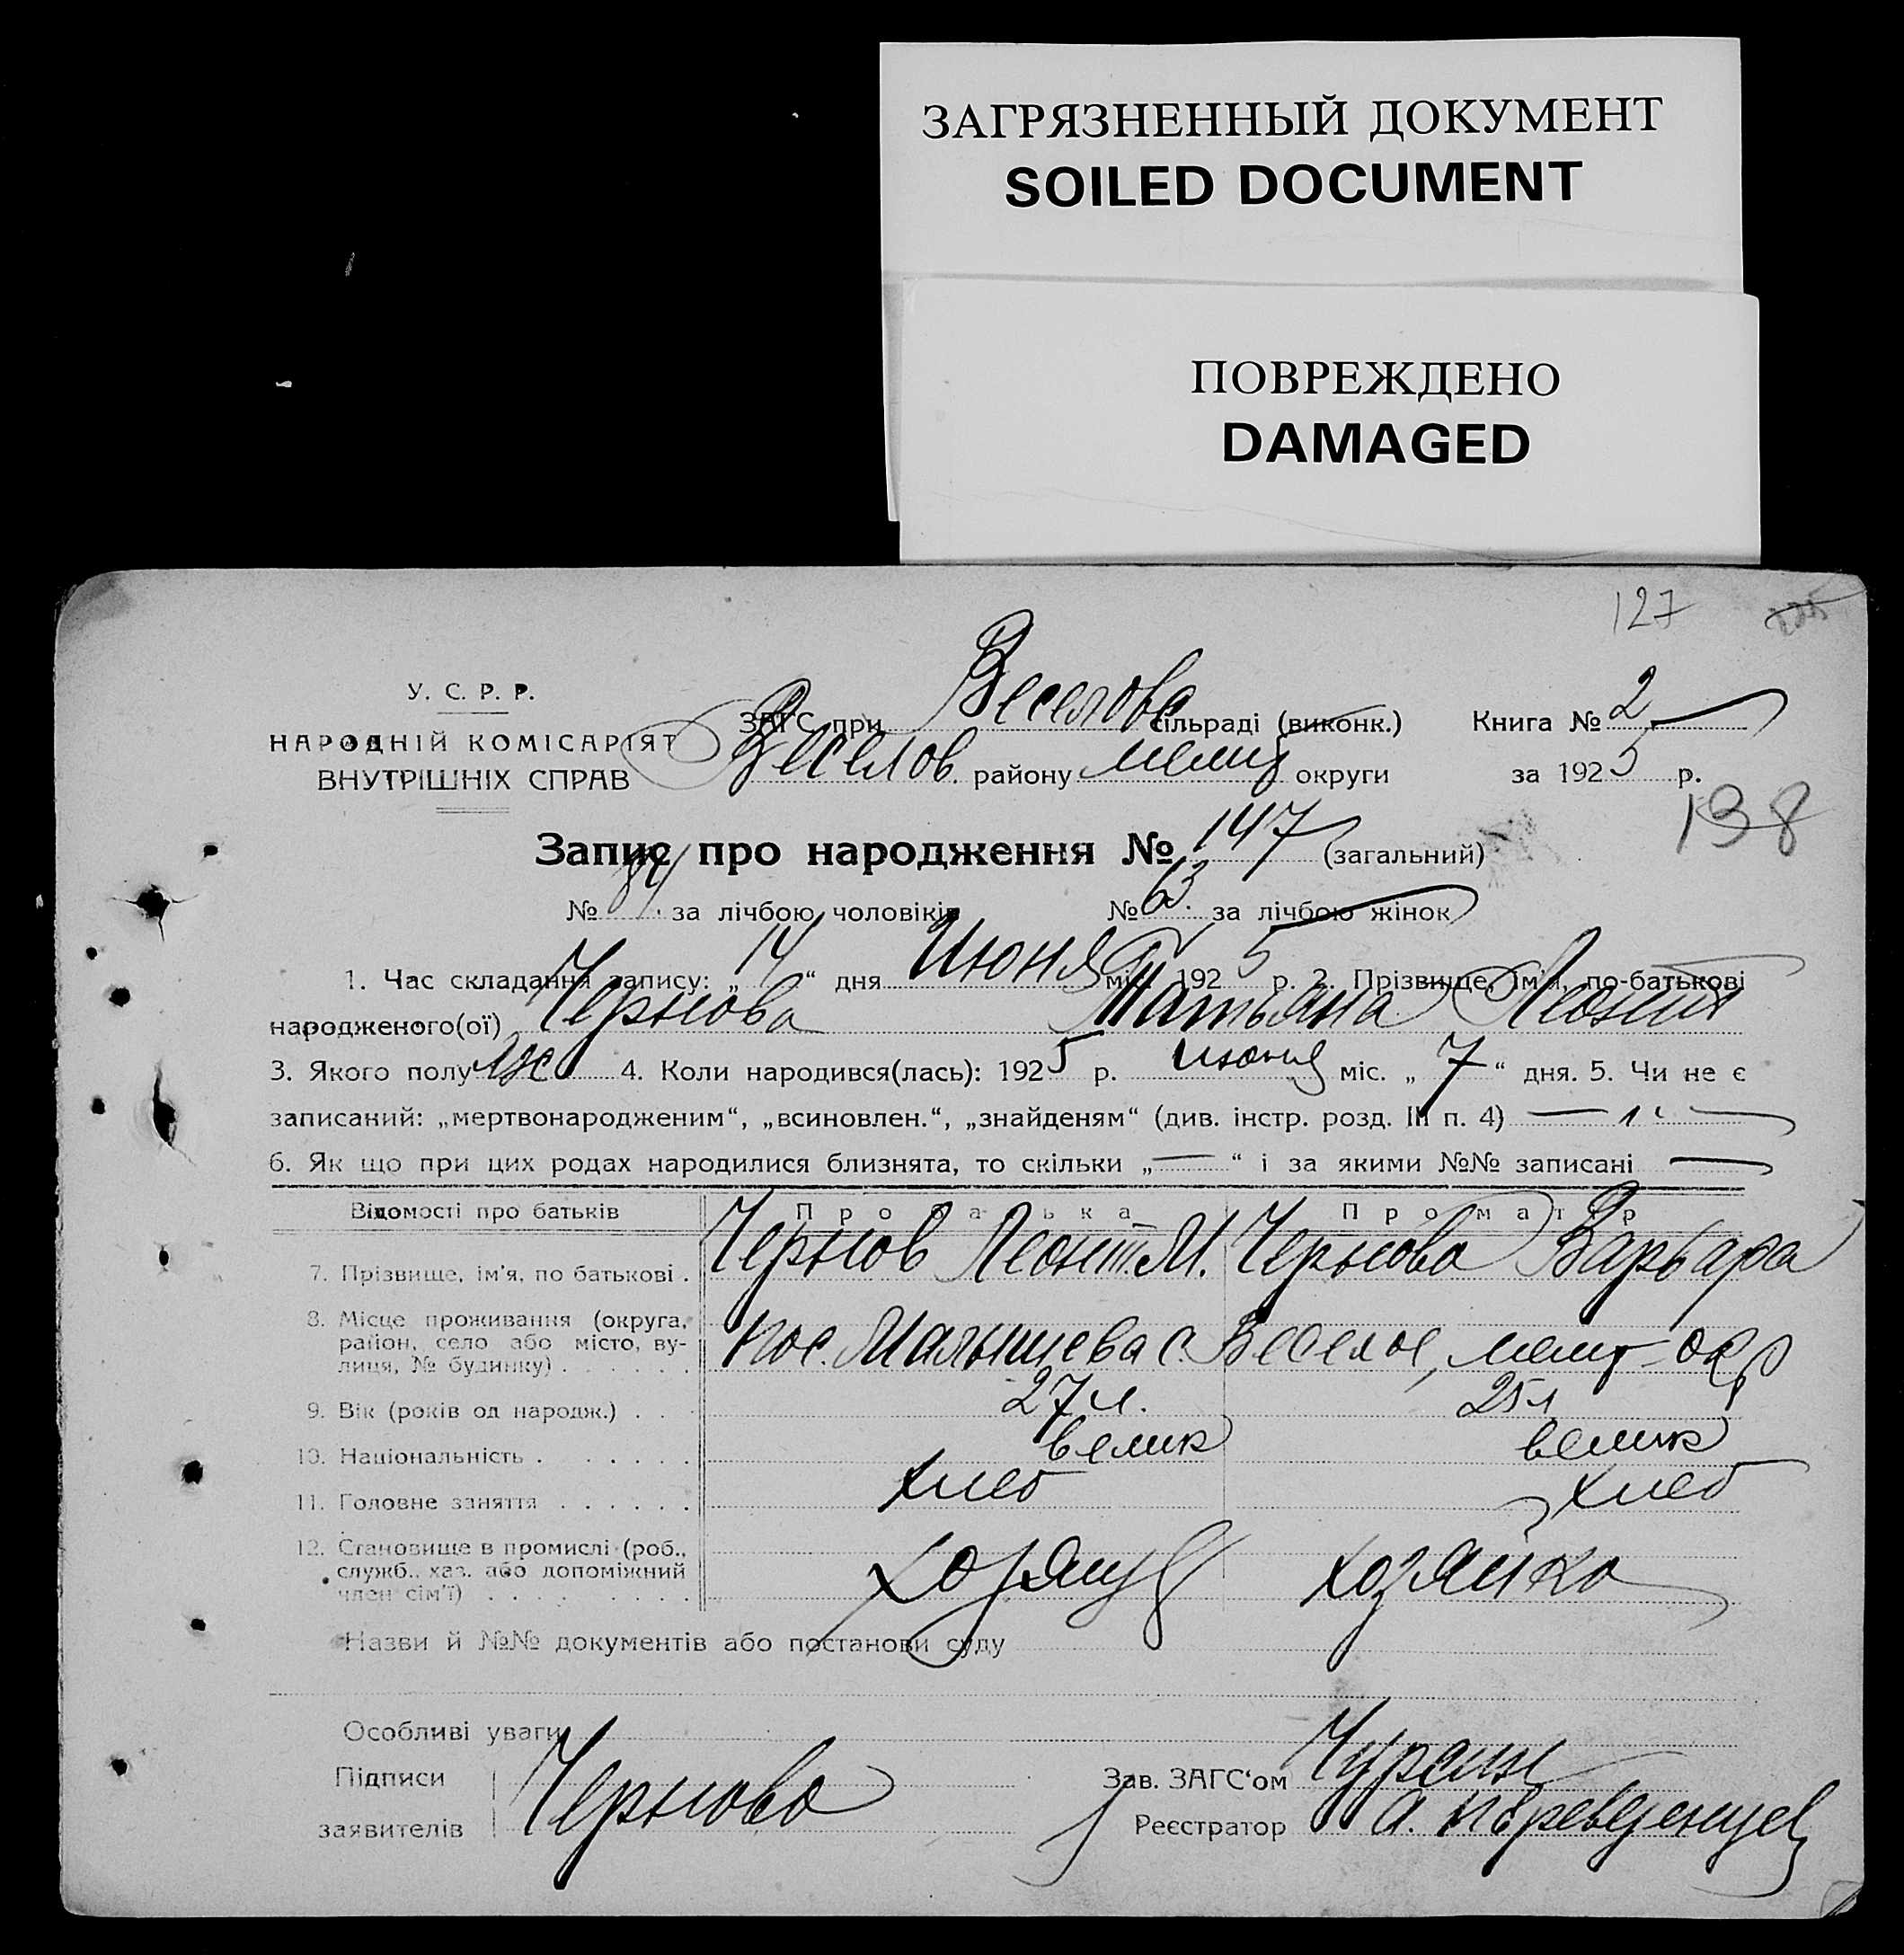 ЗАГРЯЗНЕННЫЙ ДОКУМЕНТ
SOILED DOCUMENT
ПОВРЕЖДЕНО
DAMAGED
127
У. С. Р. Р.
НАРОДНІЙ КОМІСАРІЯТ
ВНУТРІШНІХ СПРАВ
ЗАГС при Веселовс сільраді (виконк.) Книга № 2
Веселов району мелит округи за 1925 р.
138
Запис про народження № 147 (загальний)
№ 84 за лічбою чоловіків № 63. за лічбою жінок
1. Час складання запису: „14“ дня Июня міс. 1925 р. 2. Прізвище, ім'я, по-батькові
народженого(ої) Чернова Татьяна Леонт
3. Якого полу жс 4. Коли народився(лась): 1925 р. июня міс. „7“ дня. 5. Чи не є
записаний: „мертвонародженим“, „всиновлен.“, „знайденям“ (див. інстр. розд. III п. 4) —
6. Як що при цих родах народилися близнята, то скільки „—“ і за якими №№ записані —
Відомості про батьків Про батька Про матір
7. Прізвище, ім'я, по батькові . Чернов Леонт. М. Чернова Варвара
8. Місце проживання (округа,
район, село або місто, ву-
лиця, № будинку) . . . . . . пос. Малышева с. Веселое, мелит-окр
9. Вік (років од народж.) . . . 27 л. 25 л
10. Національність . . . . . . . велик велик
11. Головне заняття . . . . . . хлеб хлеб
12. Становище в промислі (роб.,
служб., хаз. або допоміжний
член сім'ї) . . . . . . . . . хозяин хозяйка
Назви й №№ документів або постанови суду
Особливі уваги
Підписи
заявителів Чернова
Зав. ЗАГС'ом
Реєстратор А. Переведенцев